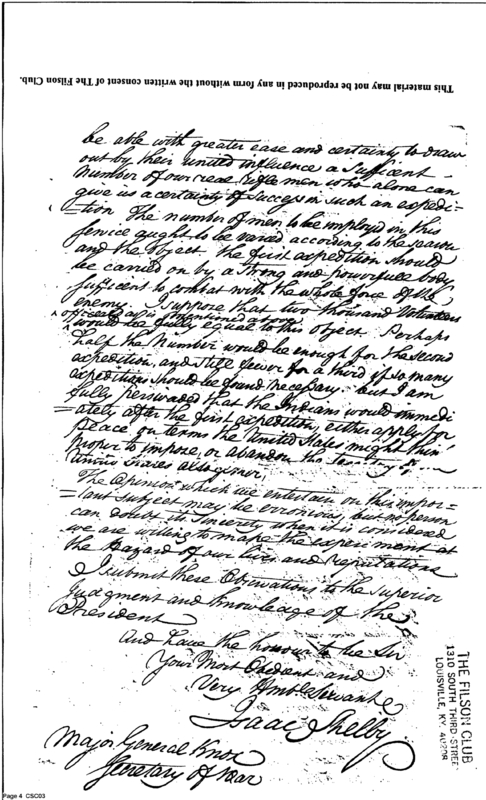 This material may not be reproduced in any form without the written consent of The Filson Club.
be able with greater ease and certainty to draw
out by their united influence a Sufficent
Number of our real Riflemen who alone can
give us a certainty of Success in such an expedi-
=tion The number of men to be imployd in this
Service ought to be varied according to the season
and the object. the first expedition should
be carried on by a Strong and powerfull body
sufficent to combat with the whole force of the
enemy. I suppose that two thousand Volunteers
officered as is mentioned above
would be fully equal to this object. Perhaps
half the Number would be enough for the Second
expedition, and still fewer for a third if so many
expeditions should be found necessary. but I am
fully perswaded that the Indians would immedi
=ately after the first expedition, either apply for
Peace on terms the United States might thin
proper to impose, or abandon the
altogether.
The Opinion which we entertain on this impor-
=tant subject may be erronious, but no person
can doubt its Sincerity when it is considered
we are willing to make the experiment at
the Hazard of our lives and reputations
I submit these Observations to the Superior
Judgment and knowledge of the
President
And have the honour to be Sir
Your Most Obedient and
Very Humble Servant
Isaac Shelby
Major General Knox
Secretary of War
THE FILSON CLUB
1310 SOUTH THIRD STREE
LOUISVILLE, KY. 40208
Page 4 CSC03